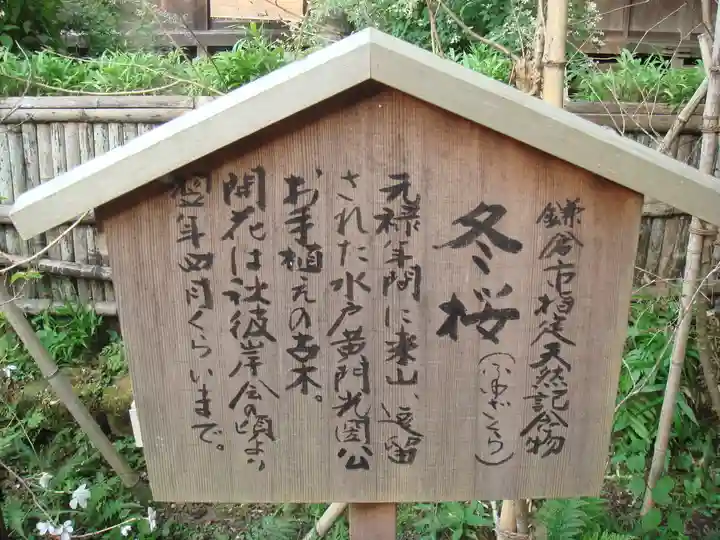 鎌倉市指定天然記念物
冬桜
(ふゆざくら)
元禄年間に来山、逗留
された水戸黄門光圀公
お手植えの古木。
開花は秋彼岸会の頃より
翌年四月くらいまで。